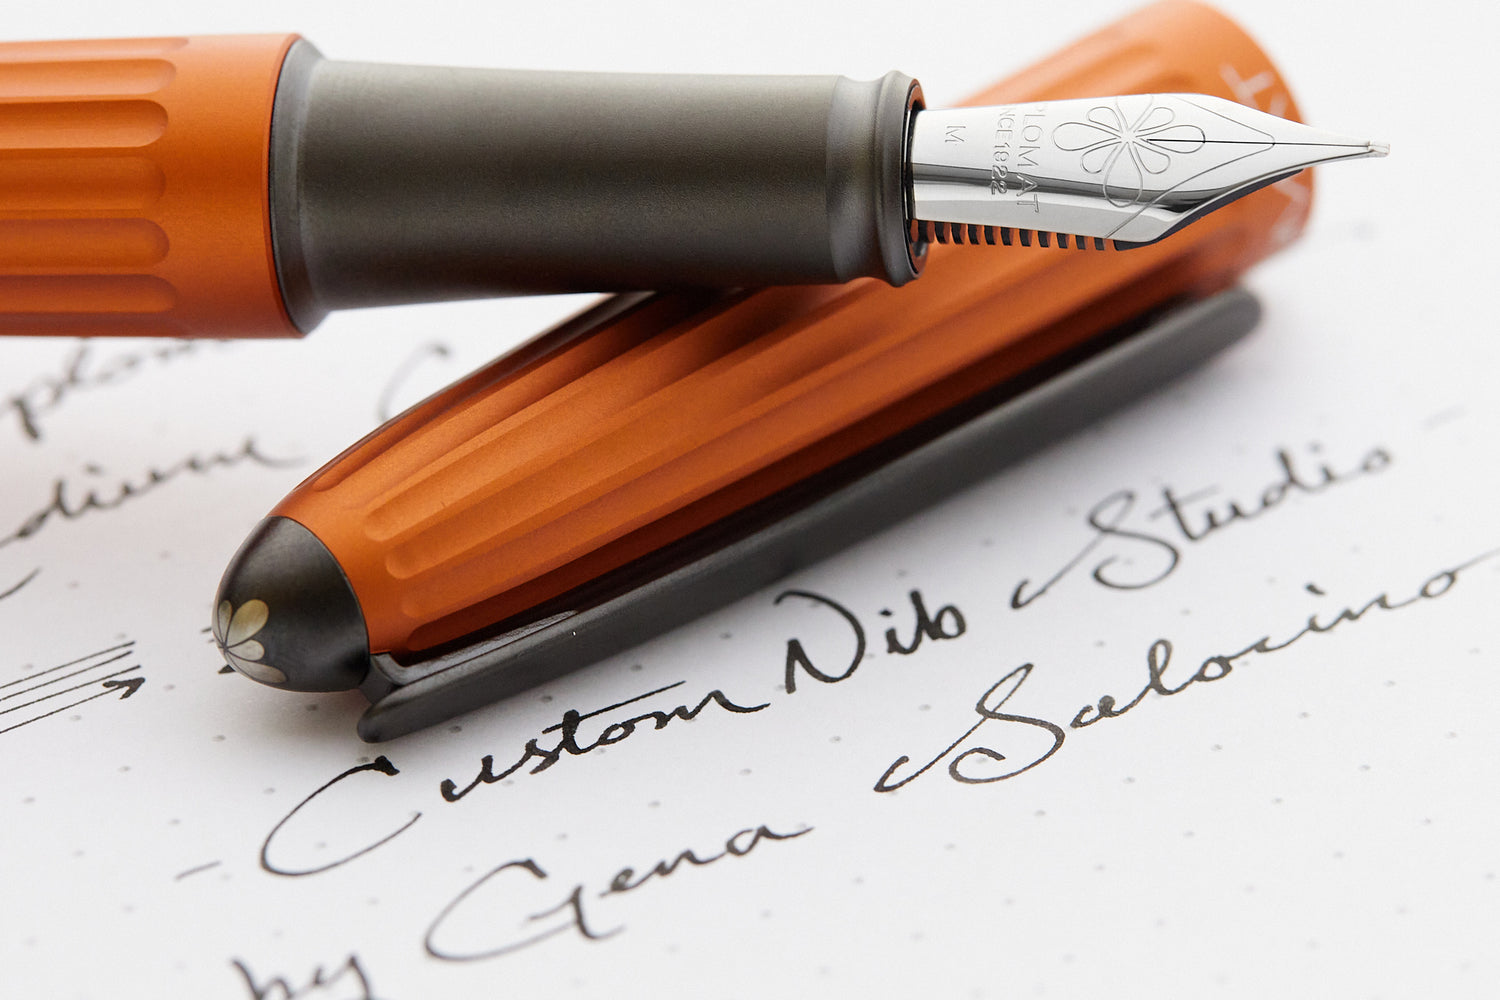 M
PLOMAT
NCE 1922
plom
dium
- Custom Nib Studio -
by Gena Salorino